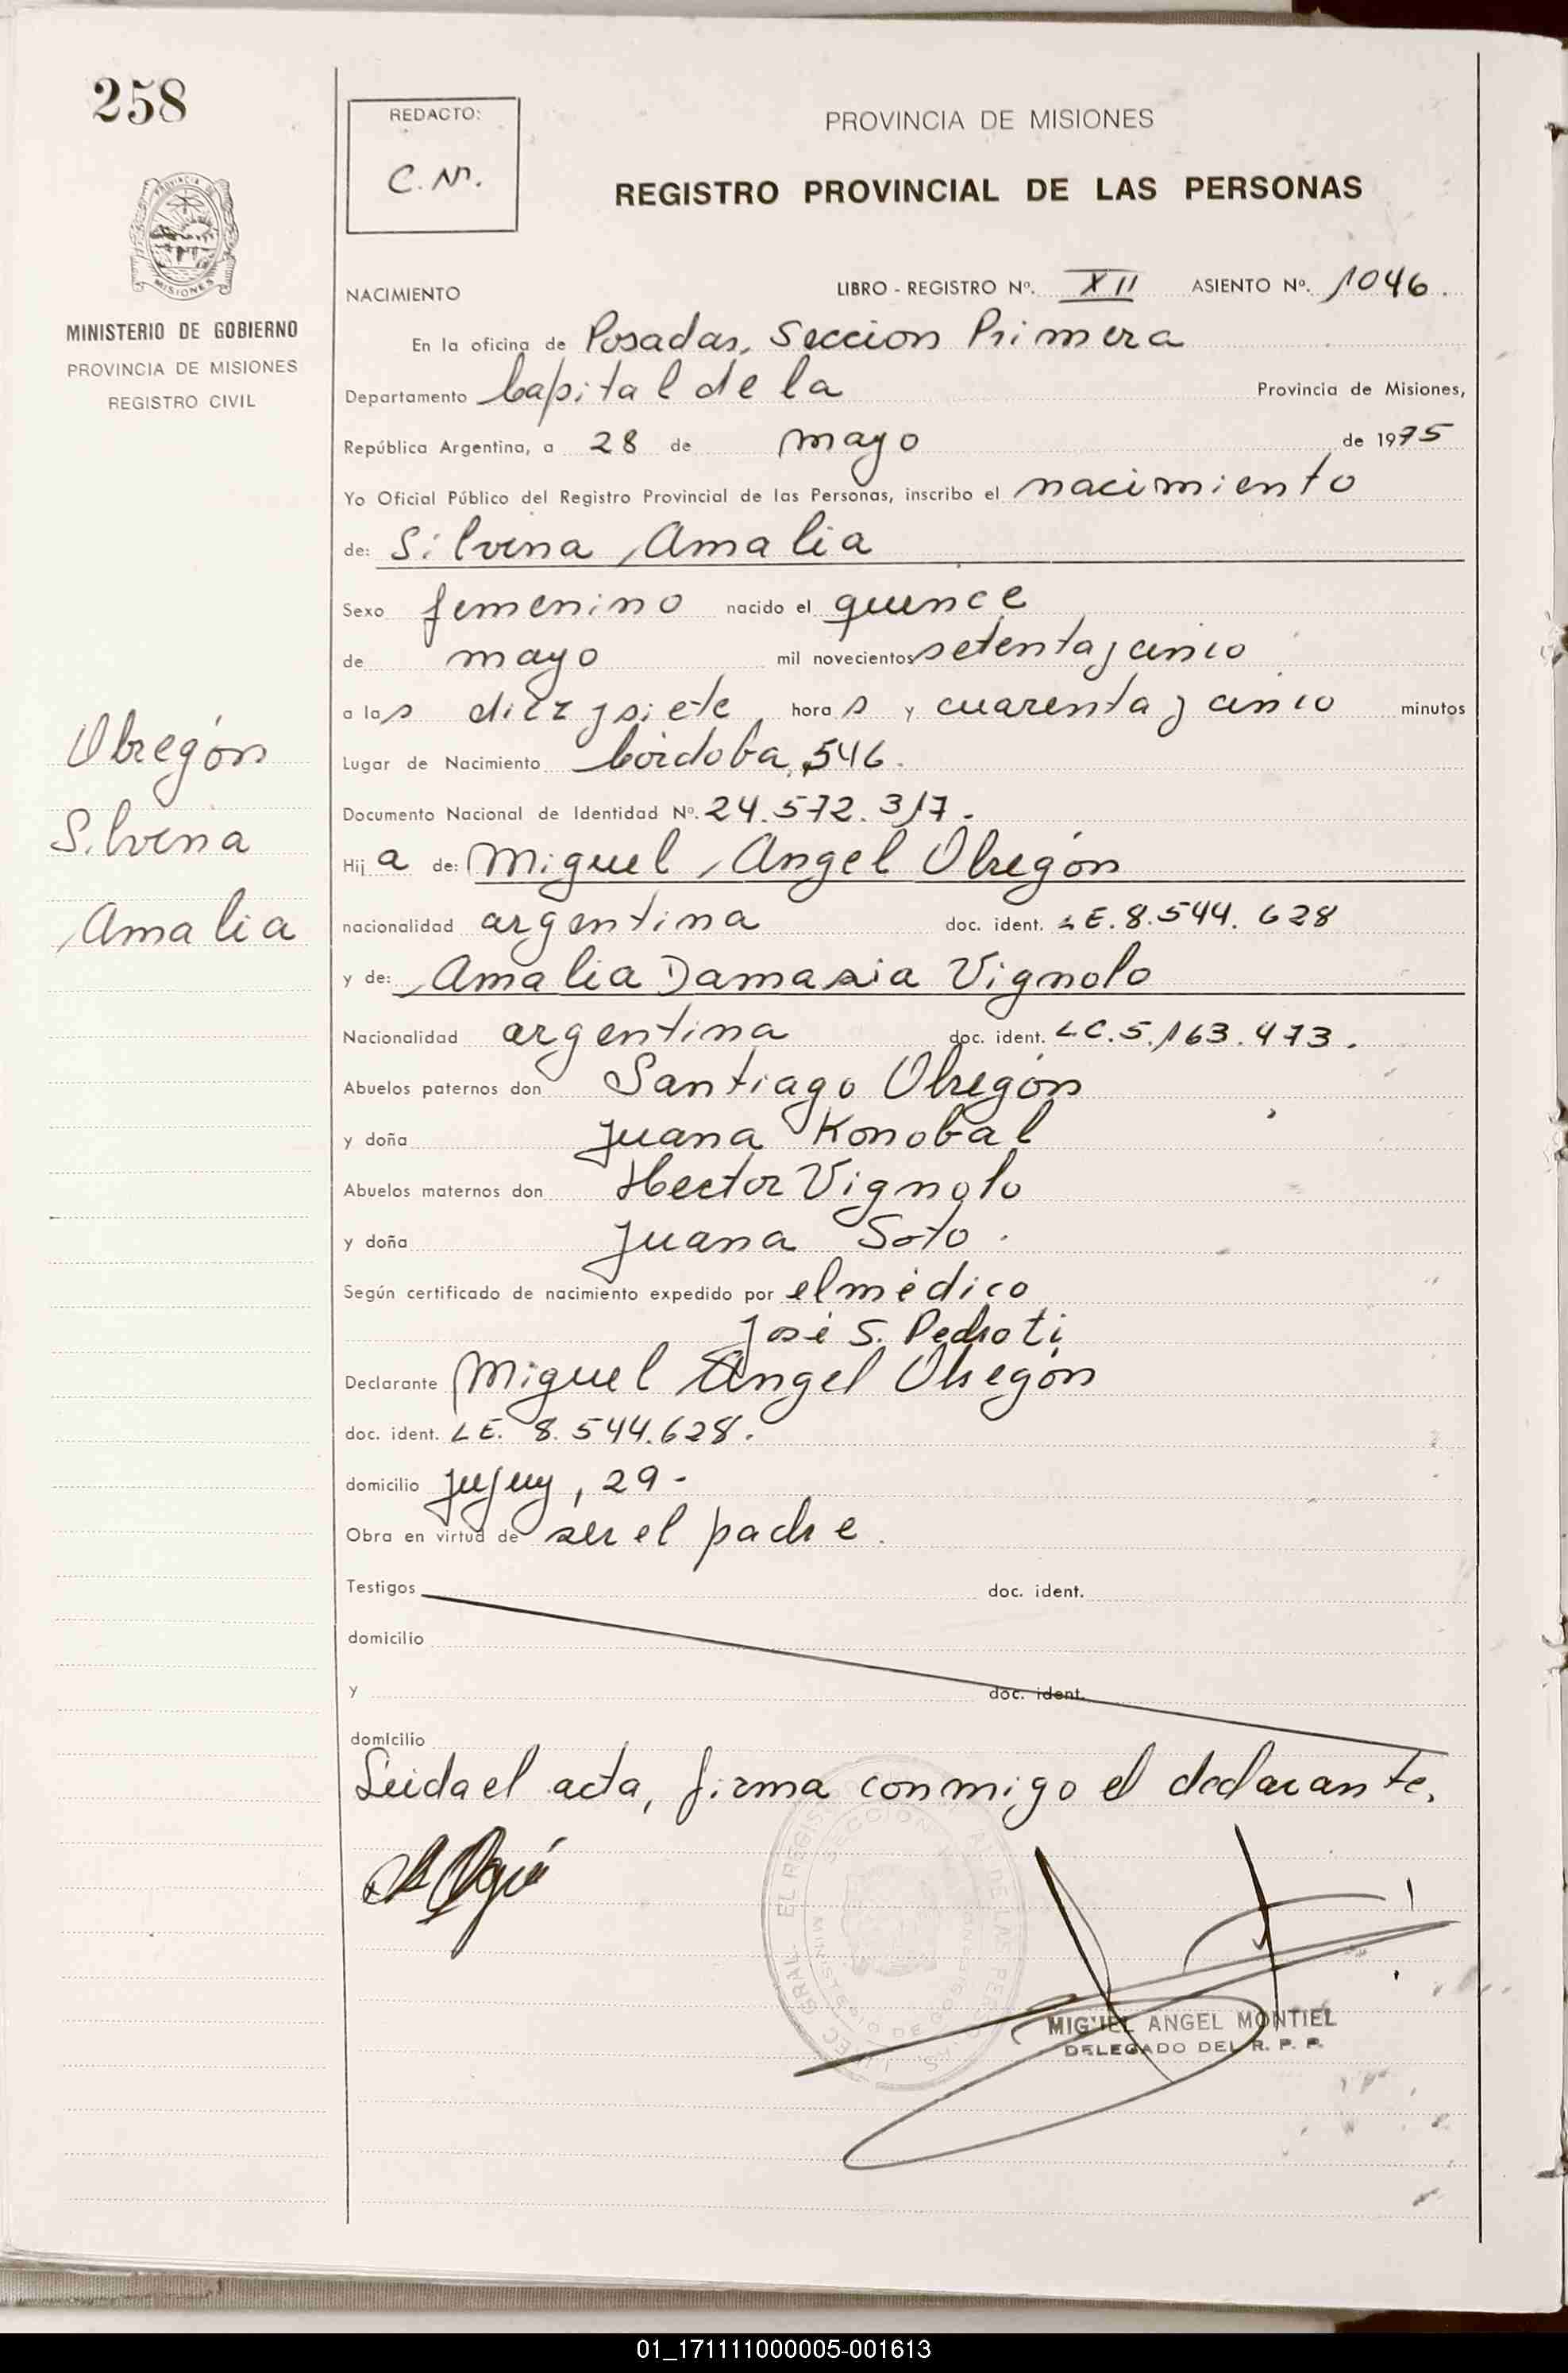 258
PROVINCIA DE
MISIONES
MINISTERIO DE GOBIERNO
PROVINCIA DE MISIONES
REGISTRO CIVIL
Obregón
Silvina
Amalia
REDACTO:
C.M.
PROVINCIA DE MISIONES
REGISTRO PROVINCIAL DE LAS PERSONAS
NACIMIENTO LIBRO - REGISTRO Nº. XII ASIENTO Nº. 1046.
En la oficina de Posadas, Seccion Primera
Departamento Capital de la Provincia de Misiones,
República Argentina, a 28 de mayo de 1975
Yo Oficial Público del Registro Provincial de las Personas, inscribo el nacimiento
de: Silvina Amalia
Sexo femenino nacido el quince
de mayo mil novecientos setenta y cinco
a las diez y siete horas y cuarenta y cinco minutos
Lugar de Nacimiento Córdoba, 546.
Documento Nacional de Identidad Nº. 24.572.317.
Hija de: Miguel Angel Obregón
nacionalidad argentina doc. ident. LE. 8.544.628
y de: Amalia Damasia Vignolo
Nacionalidad argentina doc. ident. LC. 5.163.473.
Abuelos paternos don Santiago Obregón
y doña Juana Konobal
Abuelos maternos don Hector Vignolo
y doña Juana Soto.
Según certificado de nacimiento expedido por el médico
José S. Pedroti
Declarante Miguel Angel Obregón
doc. ident. LE. 8.544.628.
domicilio Jujuy, 29-
Obra en virtud de ser el padre.
Testigos doc. ident.
domicilio
y doc. ident.
domicilio
Leida el acta, firma conmigo el declarante.
MIGUEL ANGEL MONTIEL
DELEGADO DEL R. P. P.
01_171111000005-001613